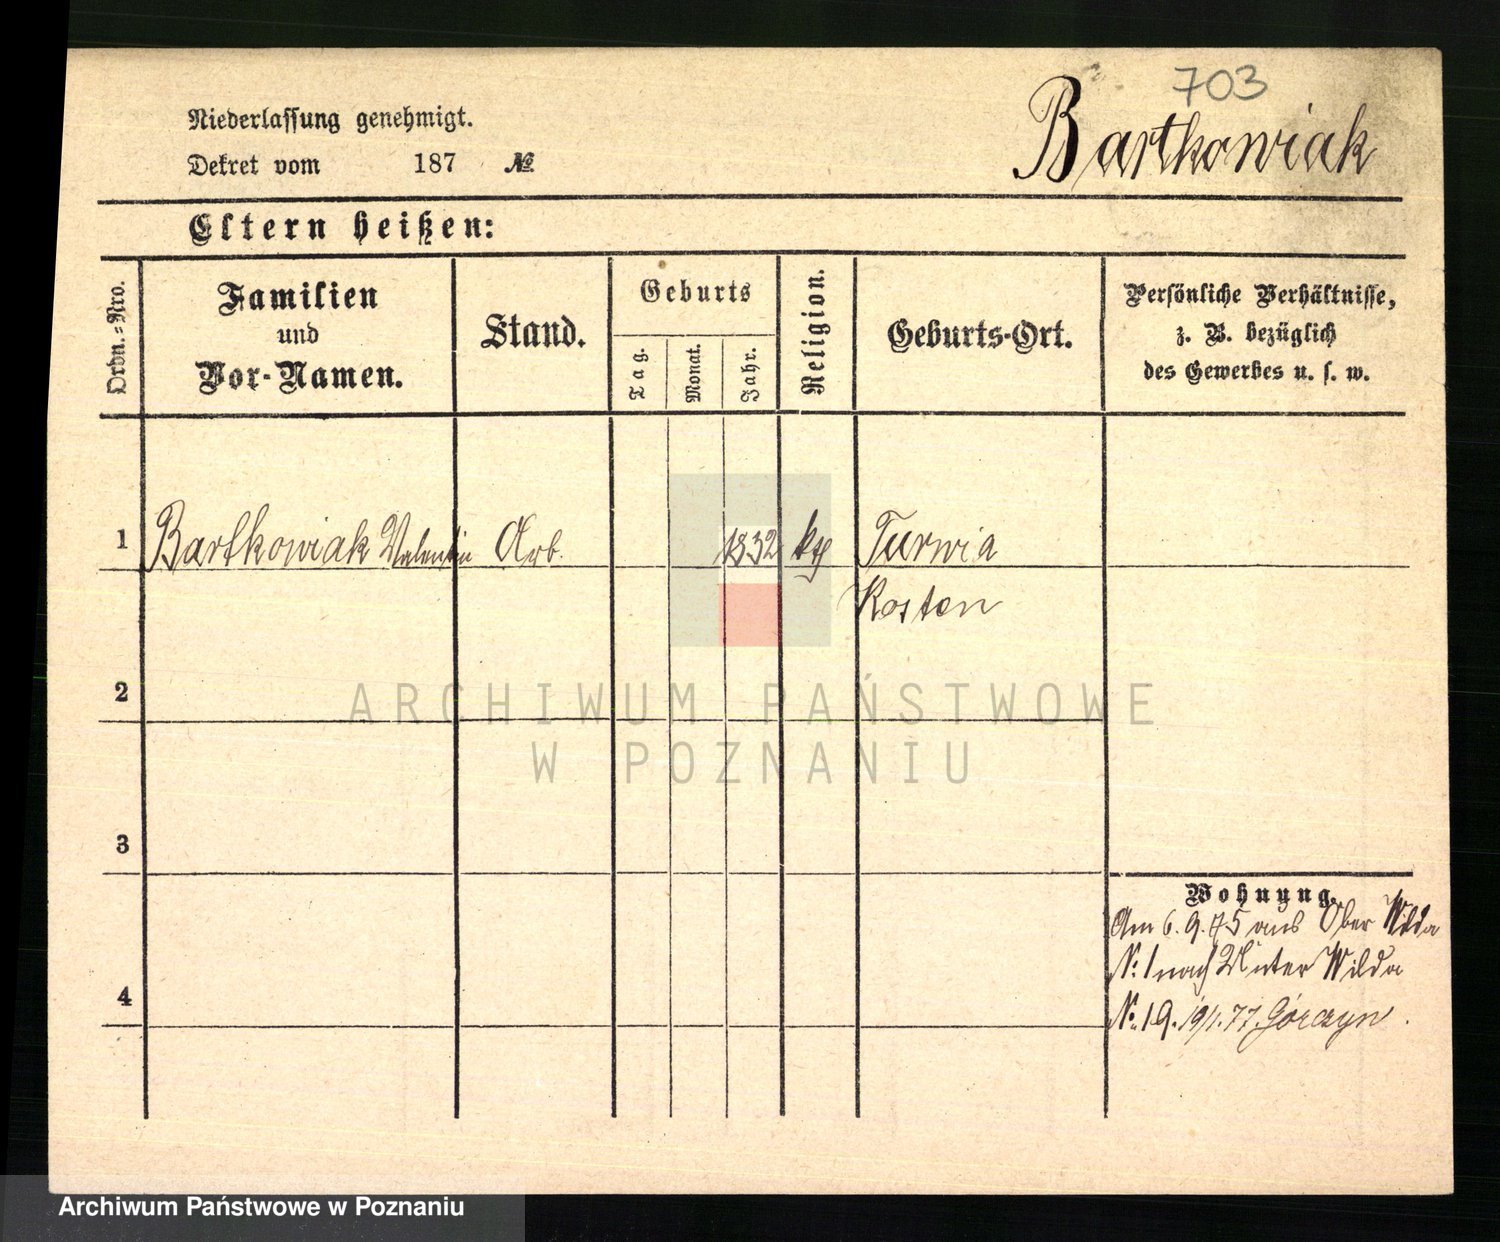 703
Niederlassung genehmigt.
Bartkowiak
Dekret vom 187 №
Eltern heißen:
Ordn.-Nro.
Familien
und
Vor-Namen.
Stand.
Geburts
Tag.
Monat.
Jahr.
Religion.
Geburts-Ort.
Persönliche Verhältnisse,
z. B. bezüglich
des Gewerbes u. s. w.
1 Bartkowiak Valentin Arb. 1832 kth Turwia
Kosten
2
ARCHIWUM PAŃSTWOWE
W POZNANIU
3
Wohnung.
Am 6.9.75 aus Ober Wilda
№ 1 nach Unter Wilda
4
№ 19. 19/1.77. Górczyn.
Archiwum Państwowe w Poznaniu